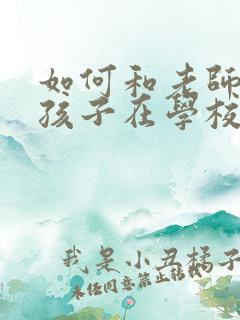 如何和老師
孩子在學校
我是小丑橘子
未任同意禁止轉載